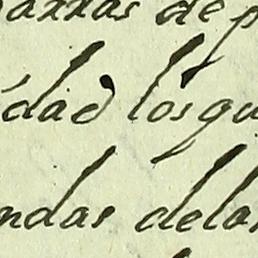 arras de p
dad los qu
ndas delas